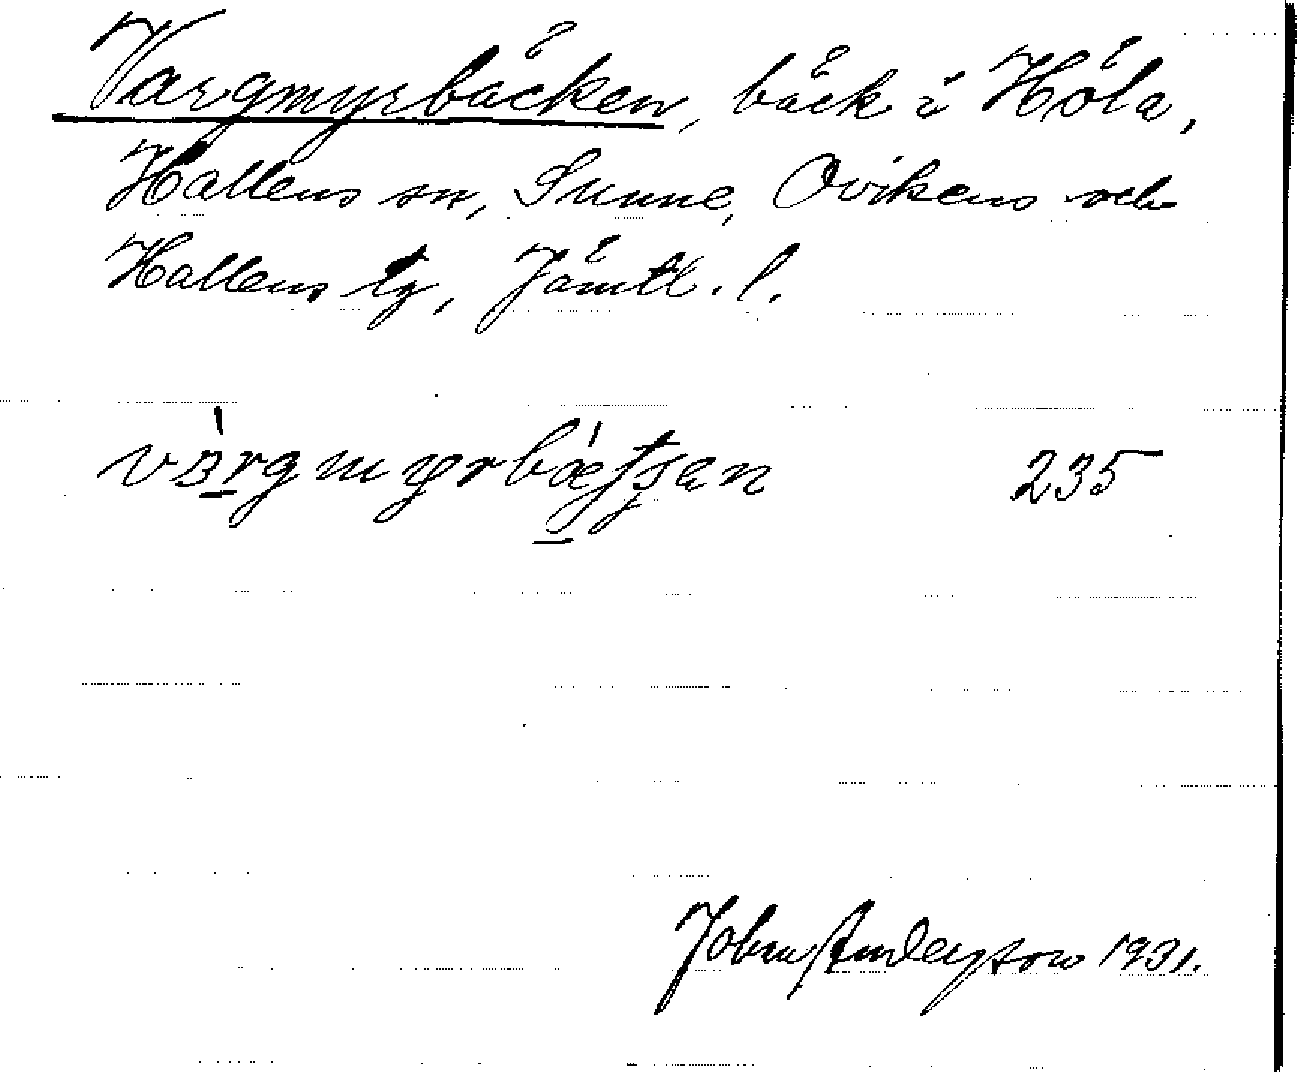 Vargmyrbäcken, bäck i Höla,
Hallens sn, Sunne, Ovikens och
Hallens tg, Jämtl. l.
235
John Andersson 1931.